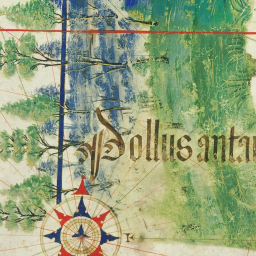 Pollus antar